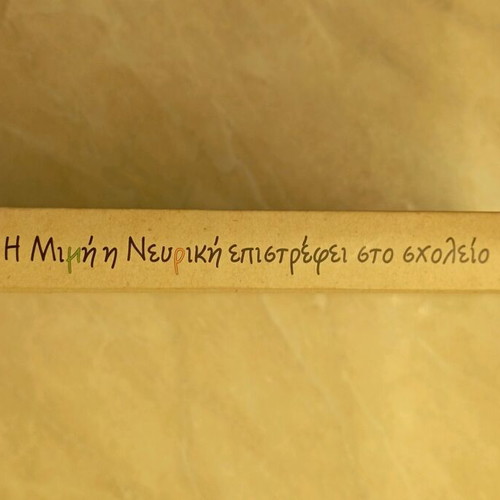 Η Μιμή η Νευρική επιστρέφει στο σχολείο